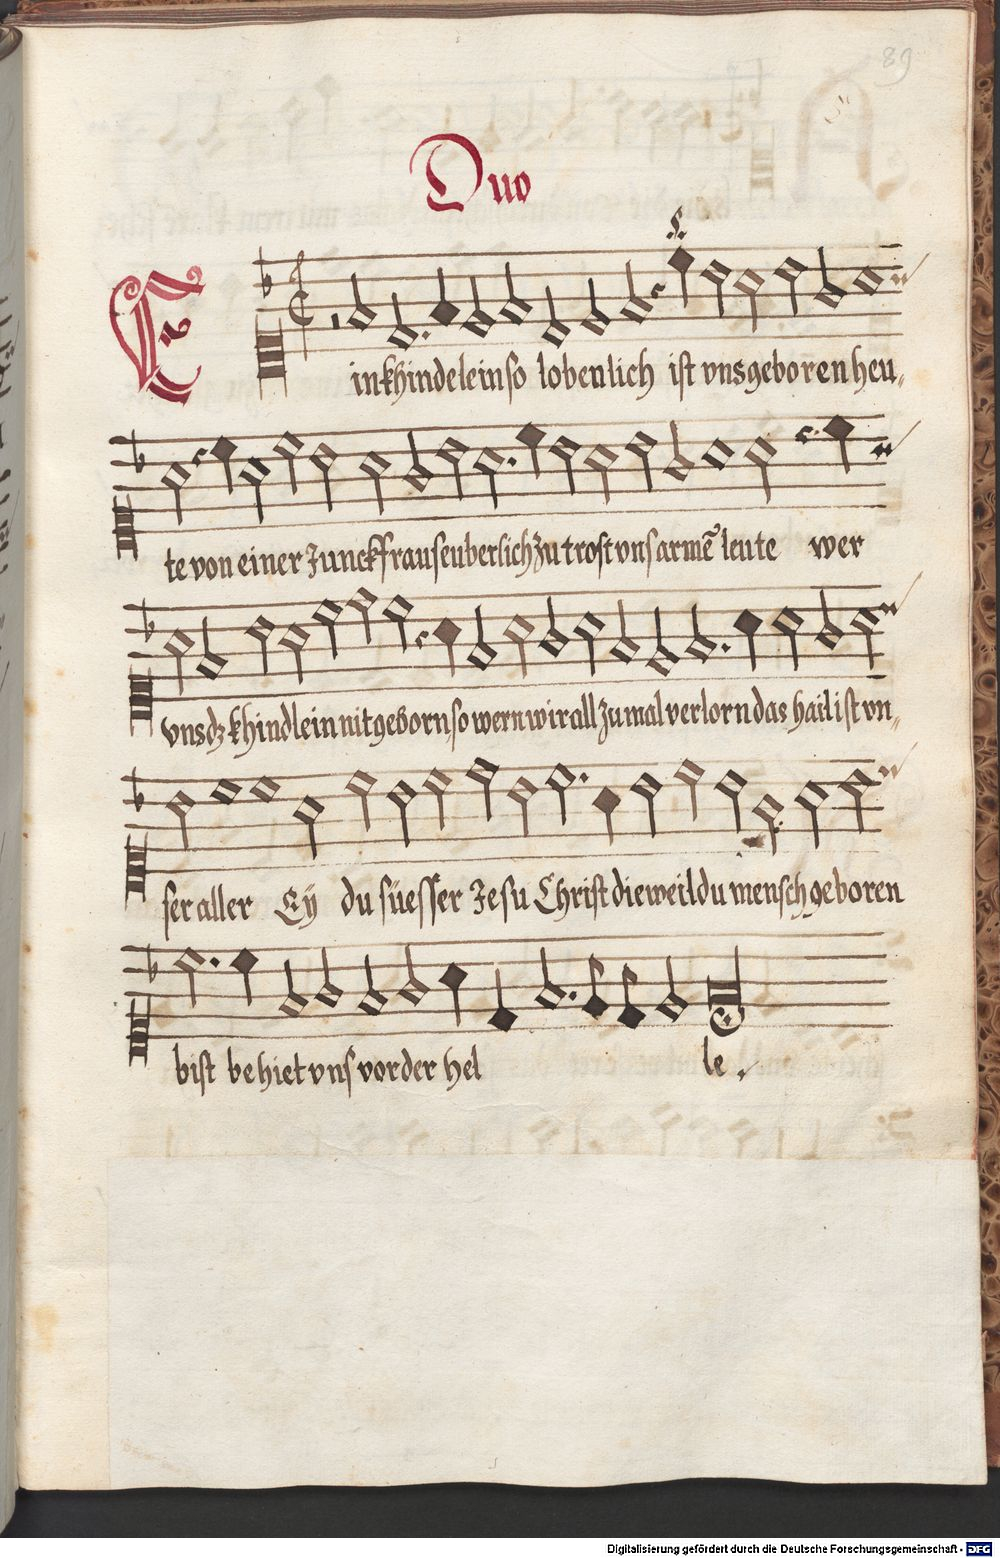 89
Duo
Ein khindelein so lobenlich ist vns geboren heu„
te von einer Junckfrau seuberlich zu trost vns armē leute wer
vns dz khindlein nit geborn so wern wir all zumal verlorn das hail ist vn„
ser aller Eÿ du süesser Jesu Christ die weil du mensch geboren
bist behiet vns vor der hel le.
Digitalisierung gefördert durch die Deutsche Forschungsgemeinschaft - DFG